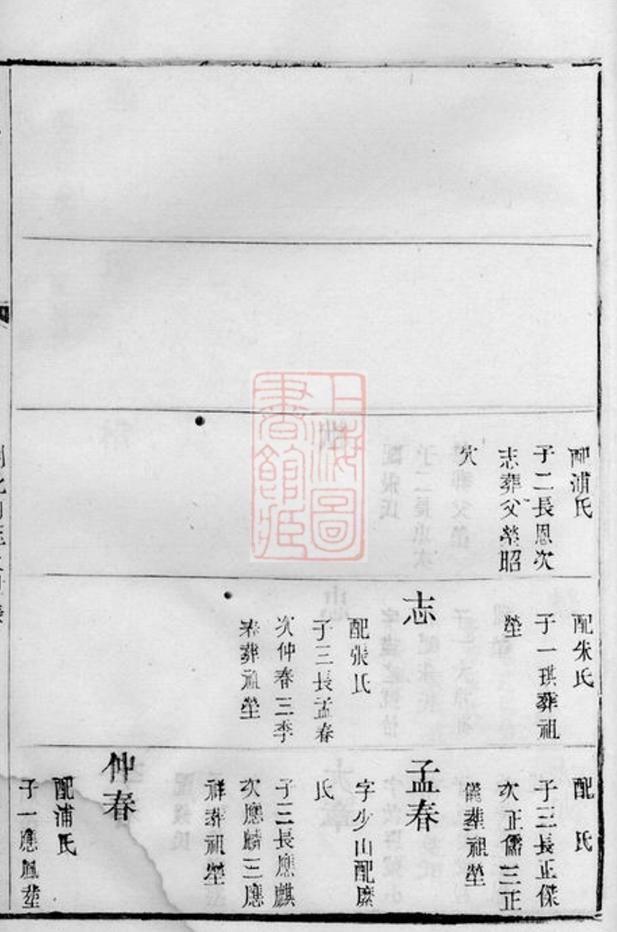 配浦氏
子二長恩次
志葬父塋昭
穴
配朱氏
子一琪葬祖
塋
志
配張氏
子三長孟春
次仲春三季
春葬祖塋
配　氏
子三長正傑
次正儒三正
儀葬祖塋
孟春
字少山配糜
氏
子三長應麒
次應麟三應
祥葬祖塋
仲春
配浦氏
子一應鳳葬
上海圖
書館藏